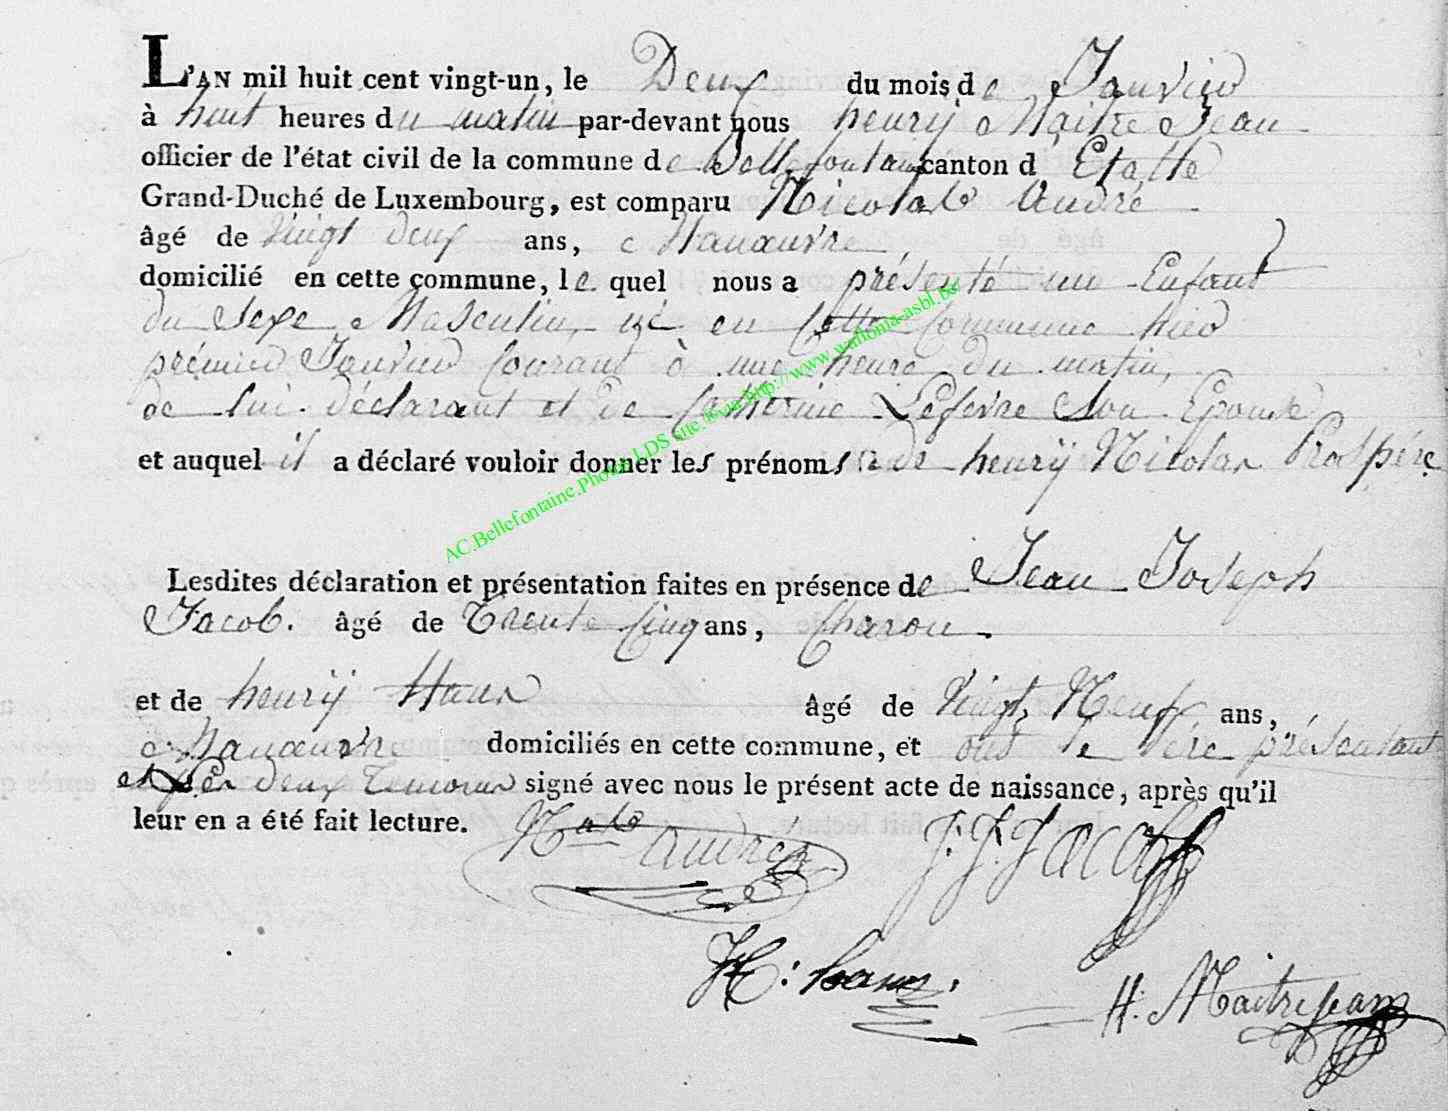 L'AN mil huit cent vingt-un, le Deux du mois de Janvier
à huit heures du matin par-devant nous henrÿ Maitre Jean
officier de l'état civil de la commune de Bellefontaine canton d'Etalle
Grand-Duché de Luxembourg, est comparu Nicolas André
âgé de Vingt deux ans, Manœuvre
domicilié en cette commune, le quel nous a présenté un Enfant
du Sexe Masculin, né en Cette Commune hier
prémier Janvier Courant à une heure du matin,
de lui déclarant et de Catherine Lefevre Son Epouse
et auquel il a déclaré vouloir donner les prénoms de henrÿ Nicolas Prospére
Lesdites déclaration et présentation faites en présence de Jean Joseph
Jacob. âgé de Trente Cinq ans, Charon
et de henrÿ Hans âgé de Vingt Neuf ans,
Manœuvre domiciliés en cette commune, et ont le Pére présentant
et les deux Temoins signé avec nous le présent acte de naissance, après qu'il
leur en a été fait lecture.
Nas André J. J. Jacob
H: hans.
H. Maitrejean
AC.Bellefontaine.Photos LDS site. via http://www.wallonia-asbl.be